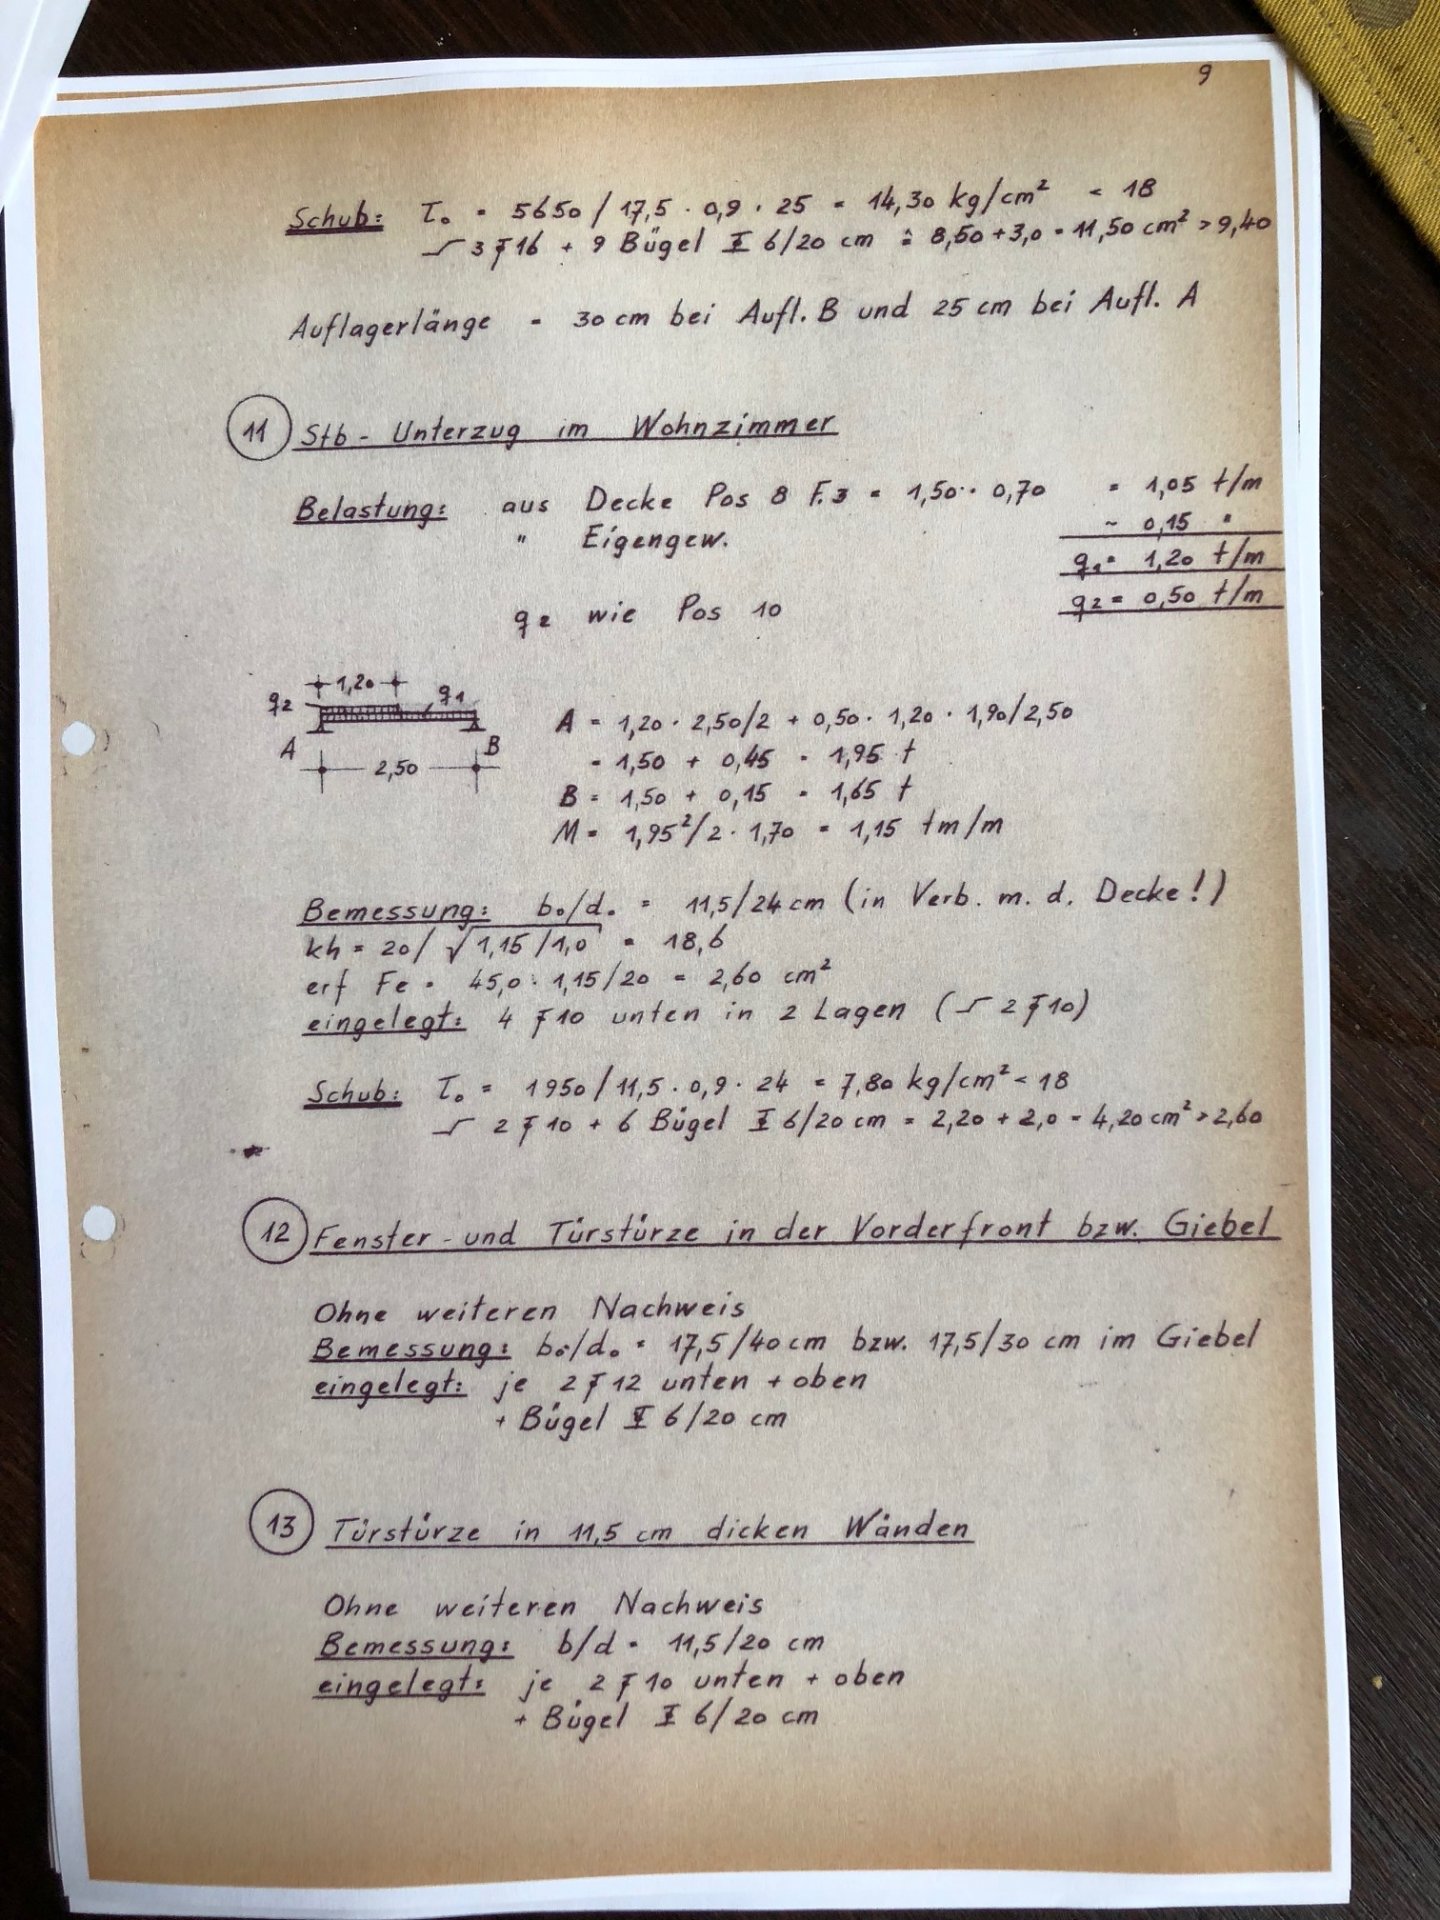 9
Schub: τ₀ = 5650 / 17,5 · 0,9 · 25 = 14,30 kg/cm² < 18
3 16 + 9 Bügel I 6/20 cm ≙ 8,50 + 3,0 = 11,50 cm² > 9,40
Auflagerlänge = 30 cm bei Aufl. B und 25 cm bei Aufl. A
11 Stb - Unterzug im Wohnzimmer
Belastung: aus Decke Pos 8 F. 3 = 1,50 · 0,70 = 1,05 t/m
" Eigengew. ~ 0,15 "
q₁ = 1,20 t/m
q₂ wie Pos 10 q₂ = 0,50 t/m
1,20
q₂ q₁
A B
2,50
A = 1,20 · 2,50/2 + 0,50 · 1,20 · 1,90/2,50
= 1,50 + 0,45 = 1,95 t
B = 1,50 + 0,15 = 1,65 t
M = 1,95²/2 · 1,70 = 1,15 tm/m
Bemessung: b₀/d₀ = 11,5/24 cm (in Verb. m. d. Decke!)
kh = 20 / √1,15 / 1,0 = 18,6
erf Fe = 45,0 · 1,15/20 = 2,60 cm²
eingelegt: 4 10 unten in 2 Lagen ( 2 10)
Schub: τ₀ = 1950 / 11,5 · 0,9 · 24 = 7,80 kg/cm² < 18
2 10 + 6 Bügel I 6/20 cm = 2,20 + 2,0 = 4,20 cm² > 2,60
12 Fenster - und Türstürze in der Vorderfront bzw. Giebel
Ohne weiteren Nachweis
Bemessung: b₀/d₀ = 17,5/40 cm bzw. 17,5/30 cm im Giebel
eingelegt: je 2 12 unten + oben
+ Bügel I 6/20 cm
13 Türstürze in 11,5 cm dicken Wänden
Ohne weiteren Nachweis
Bemessung: b/d = 11,5/20 cm
eingelegt: je 2 10 unten + oben
+ Bügel I 6/20 cm